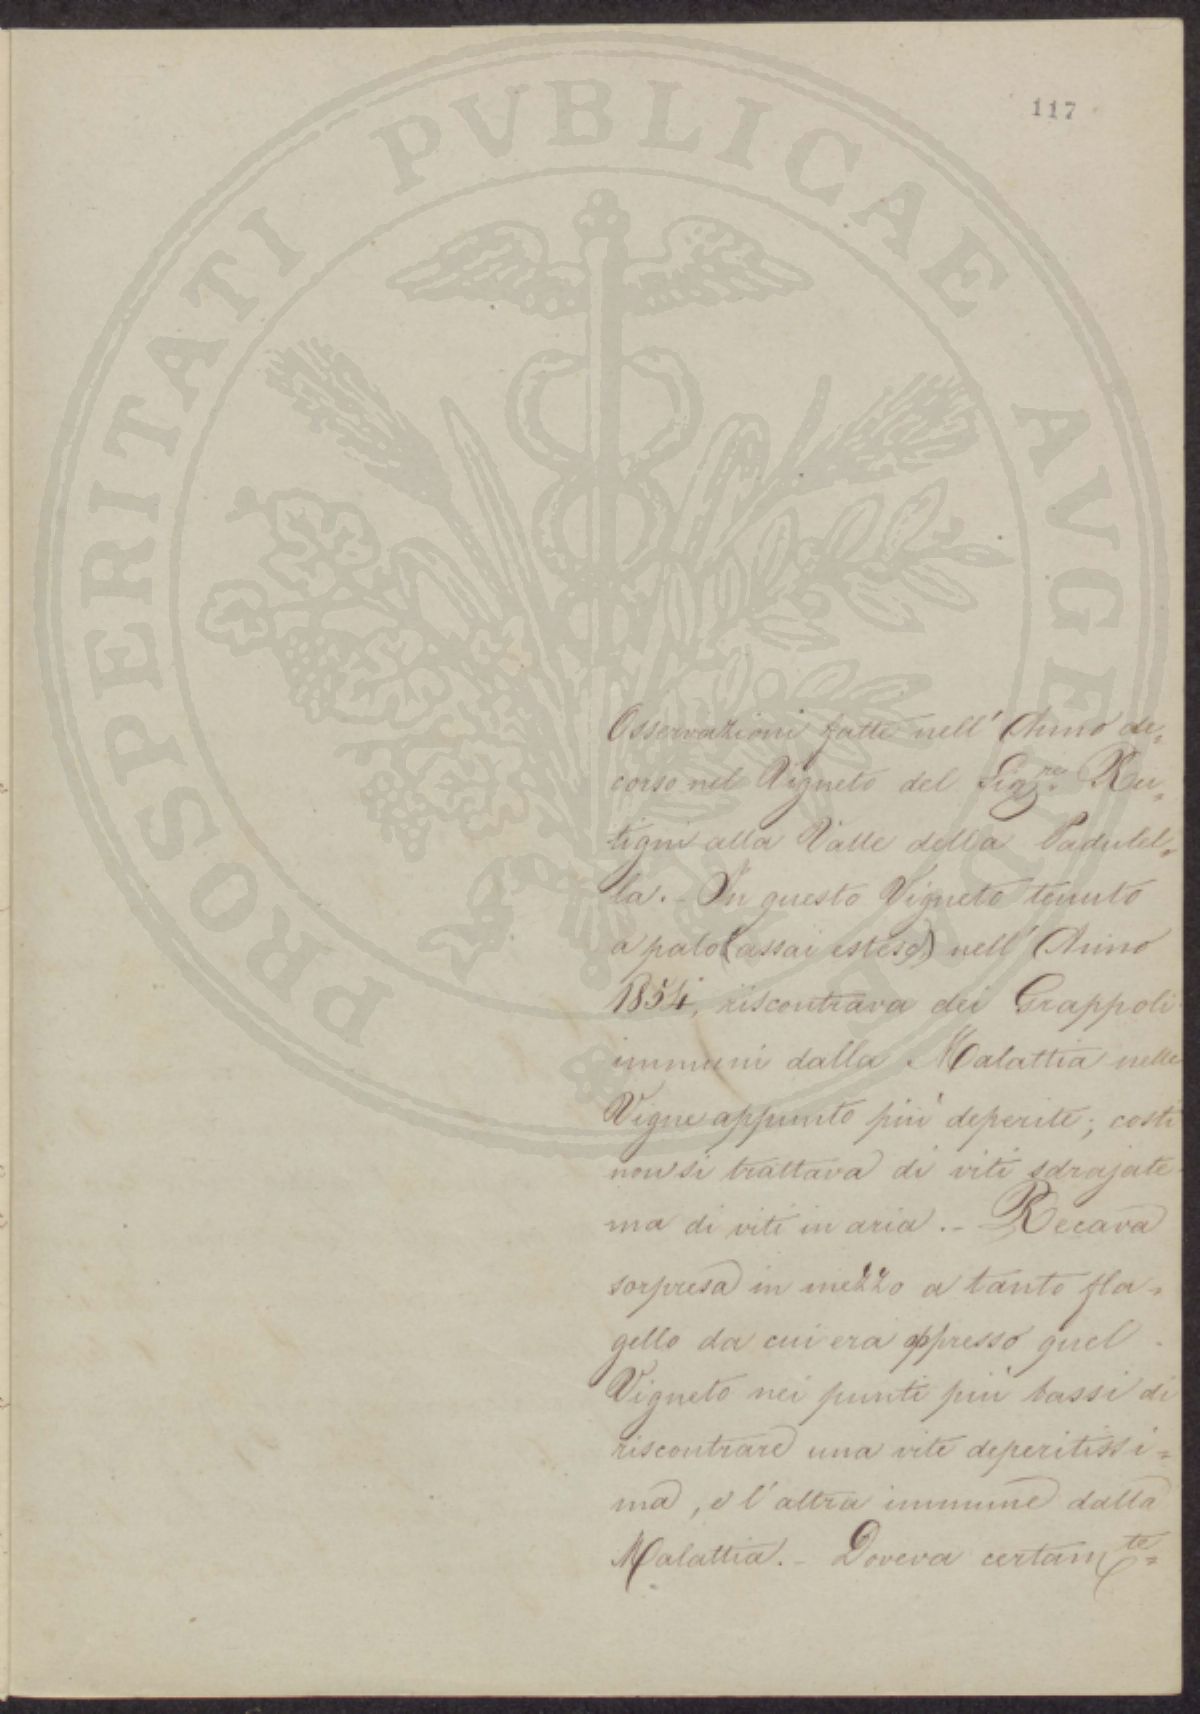 117
PROSPERITATI PVBLICAE AVGENDAE
Osservazioni fatte nell' Anno de=
corso nel Vigneto del Sig.re Ru=
tigni alla Valle della Padulel=
la. - In questo Vigneto tenuto
a palo (assai esteso) nell' Anno
1854, riscontrava dei Grappoli
immuni dalla Malattia nelle
Vigne appunto più deperite; costì
non si trattava di viti sdrajate
ma di viti in aria. - Recava
sorpresa in mezzo a tanto fla=
gello da cui era oppresso quel
Vigneto nei punti più bassi di
riscontrare una vite deperitissi=
ma, e l'altra immune dalla
Malattia. - Doveva certam.te=